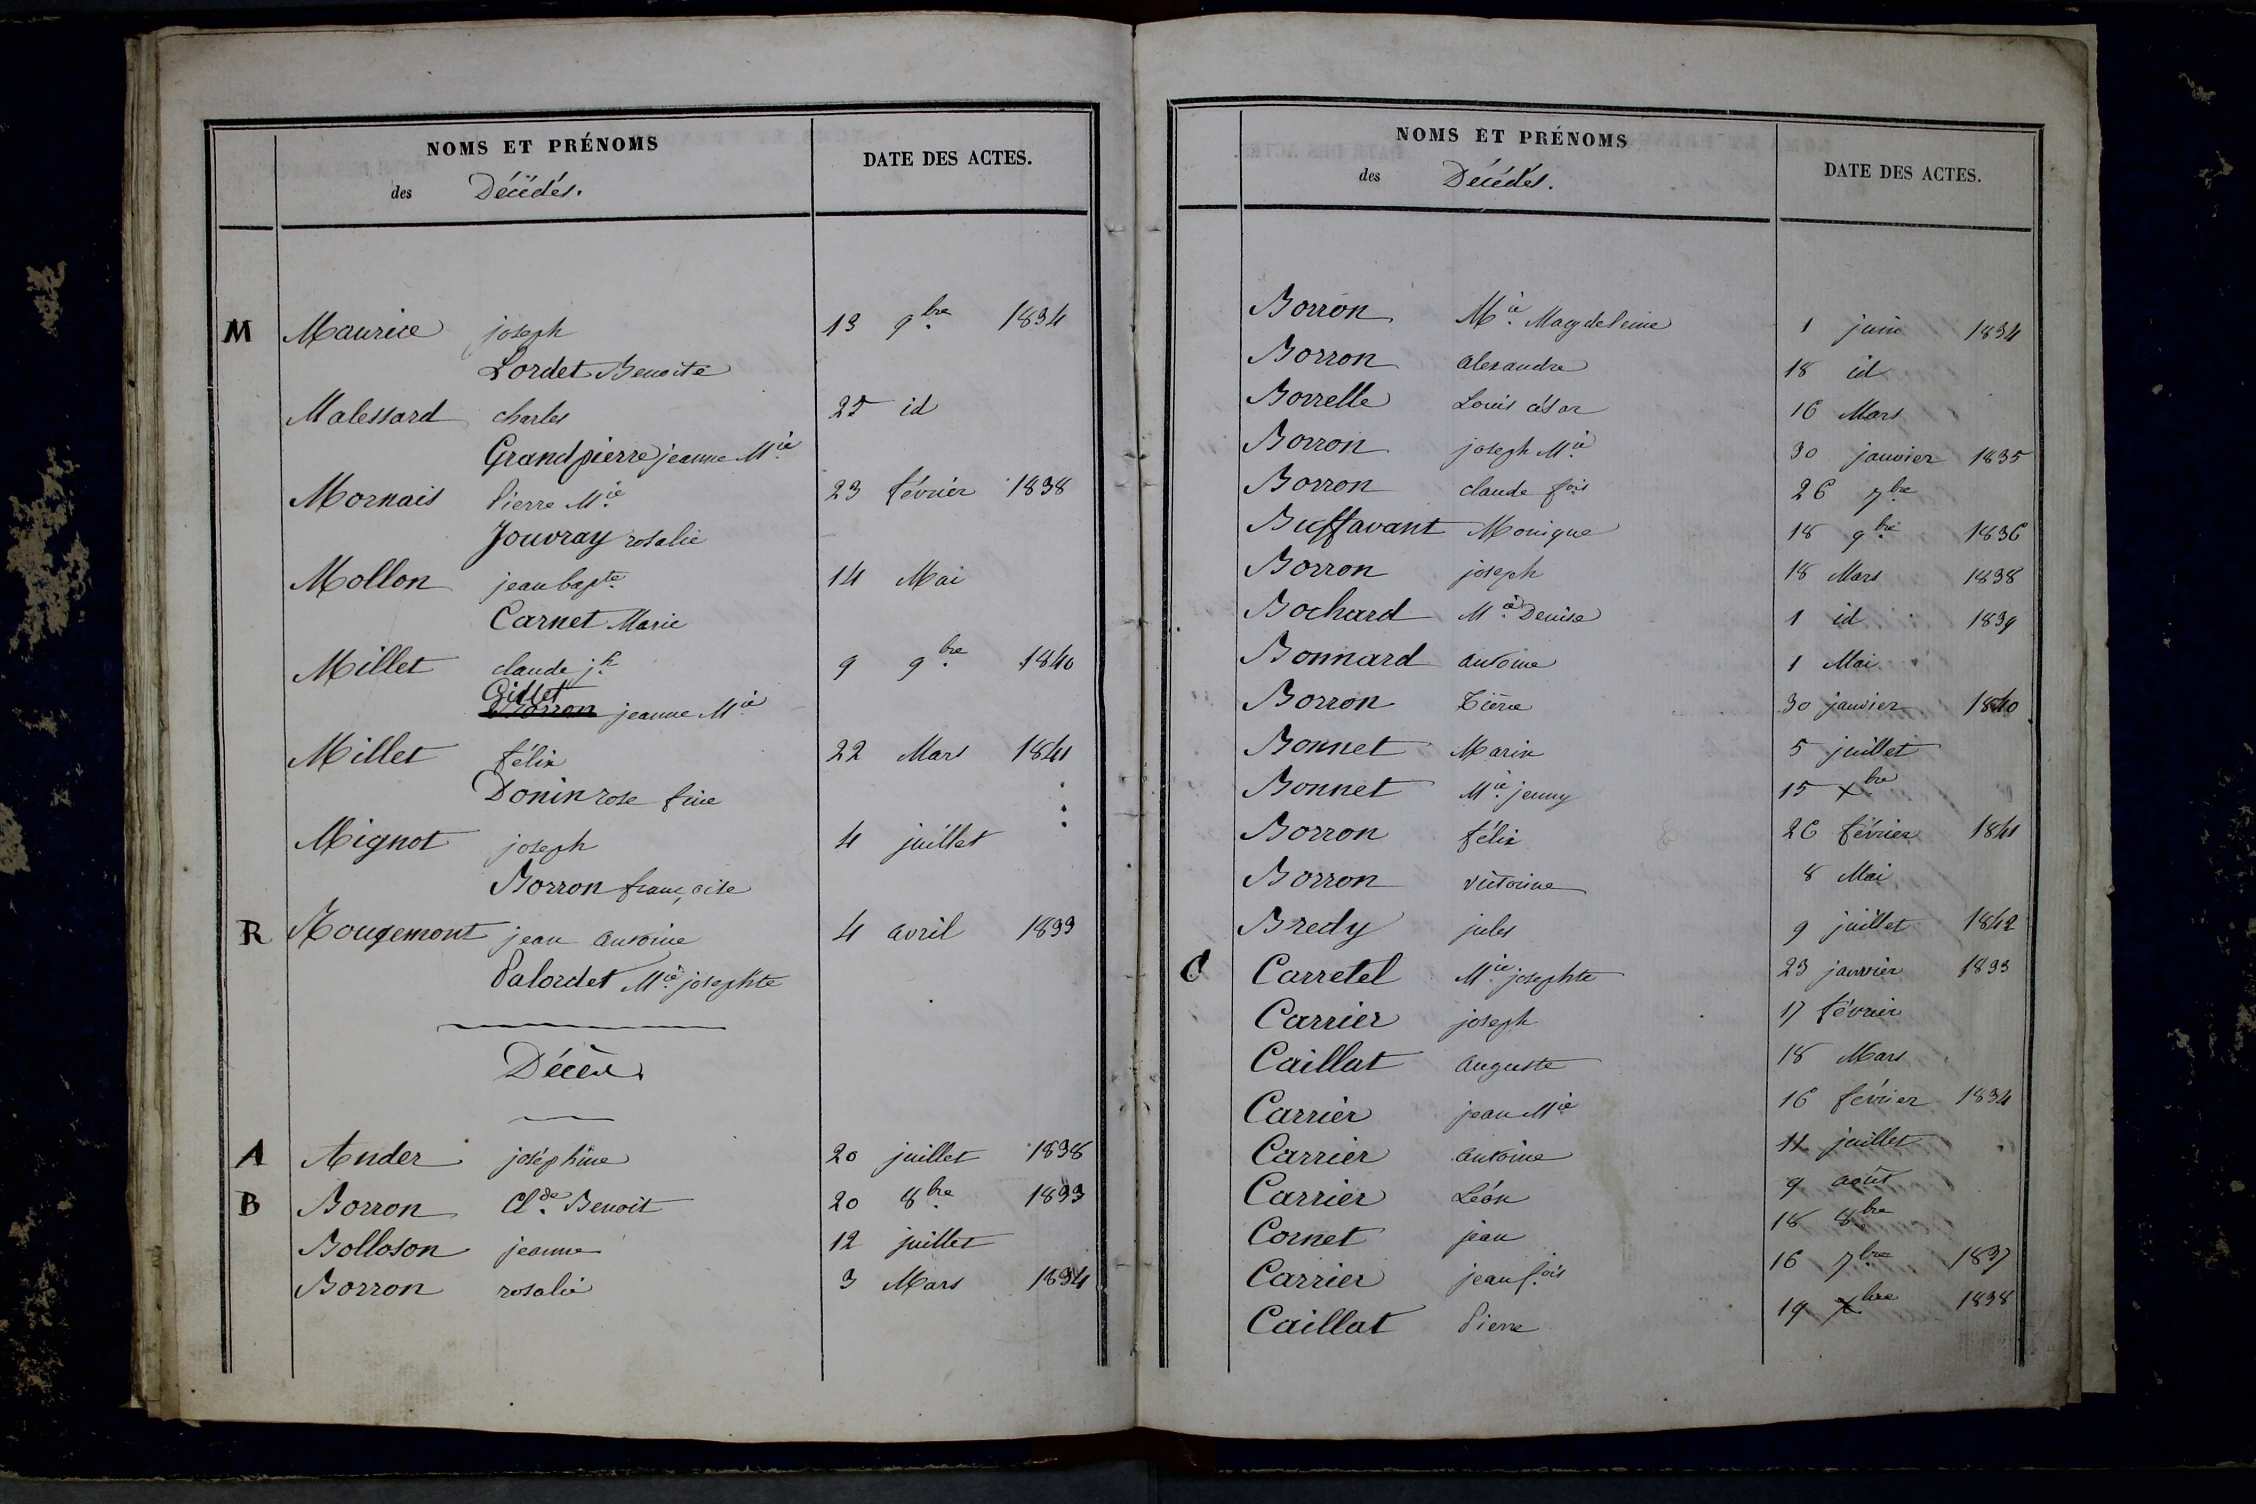 NOMS ET PRÉNOMS
des Décédés.
DATE DES ACTES.
M Maurice joseph 13 9bre 1834
Lordet Benoite
Malessard charles 25 id
Grandpierre jeanne Mie
Mornais Pierre Mie 23 février 1838
Jouvray rosalie
Mollon jean bapte 14 Mai
Carnet Marie
Millet claude jh 9 9bre 1840
Gillet
Borron jeanne Mie
Millet félix 22 Mars 1841
Donin rose fine
Mignot joseph 4 juillet
Borron françoise
R Rougemont jean antoine 4 avril 1833
Palordet Mie josephte
Décès
A Ander joséphine 20 juillet 1838
B Borron Cl.de Benoit 20 8bre 1833
Bolloson jeanne 12 juillet
Borron rosalie 3 Mars 1834
NOMS ET PRÉNOMS
des Décédés.
DATE DES ACTES.
Borron Mie Magdeleine 1 juin 1834
Borron alexandre 18 id
Borrelle Louis césar 16 Mars
Borron joseph Mie 30 janvier 1835
Borron claude fois 26 7bre
Buffavant Monique 18 9bre 1836
Borron joseph 18 Mars 1838
Bochard Mie Denise 1 id 1839
Bonnard antoine 1 Mai
Borron 30 janvier 1840
Bonnet Marin 5 juillet
Bonnet Mie jenny 15 xbre
Borron félix 26 février 1841
Borron victorine 8 Mai
Bredy jules 9 juillet 1842
C Carretel Mie josephte 23 janvier 1833
Carrier joseph 17 février
Caillat auguste 18 Mars
Carrier jean Mie 16 février 1834
Carrier antoine 11 juillet
Carrier Léon 9 août
Cornet jean 18 8bre
Carrier jean fois 16 7bre 1837
Caillat Pierre 19 xbre 1838